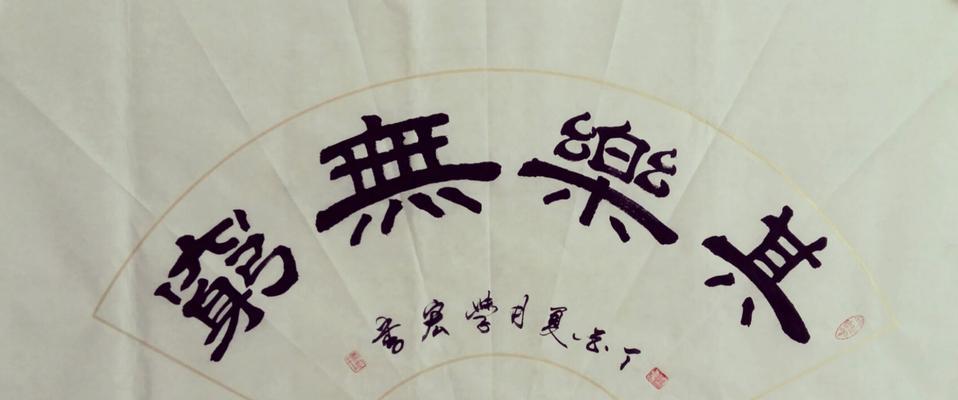 其樂無窮
丁亥夏月學宏書